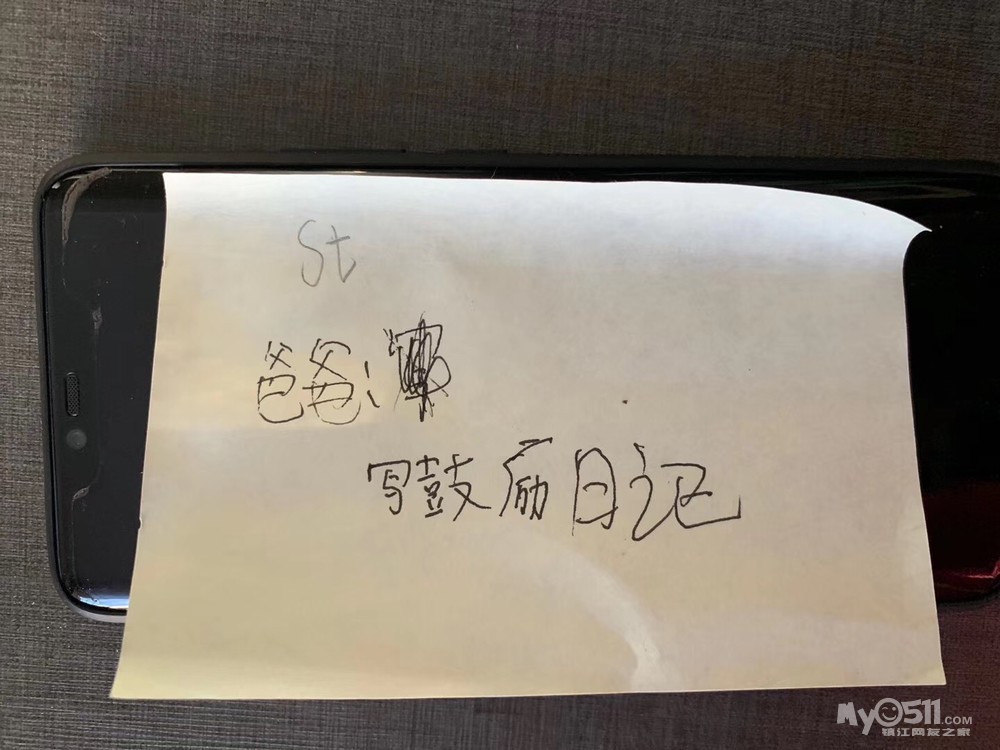 St
爸爸：
写鼓励日记
My0511.COM
镇江网友之家